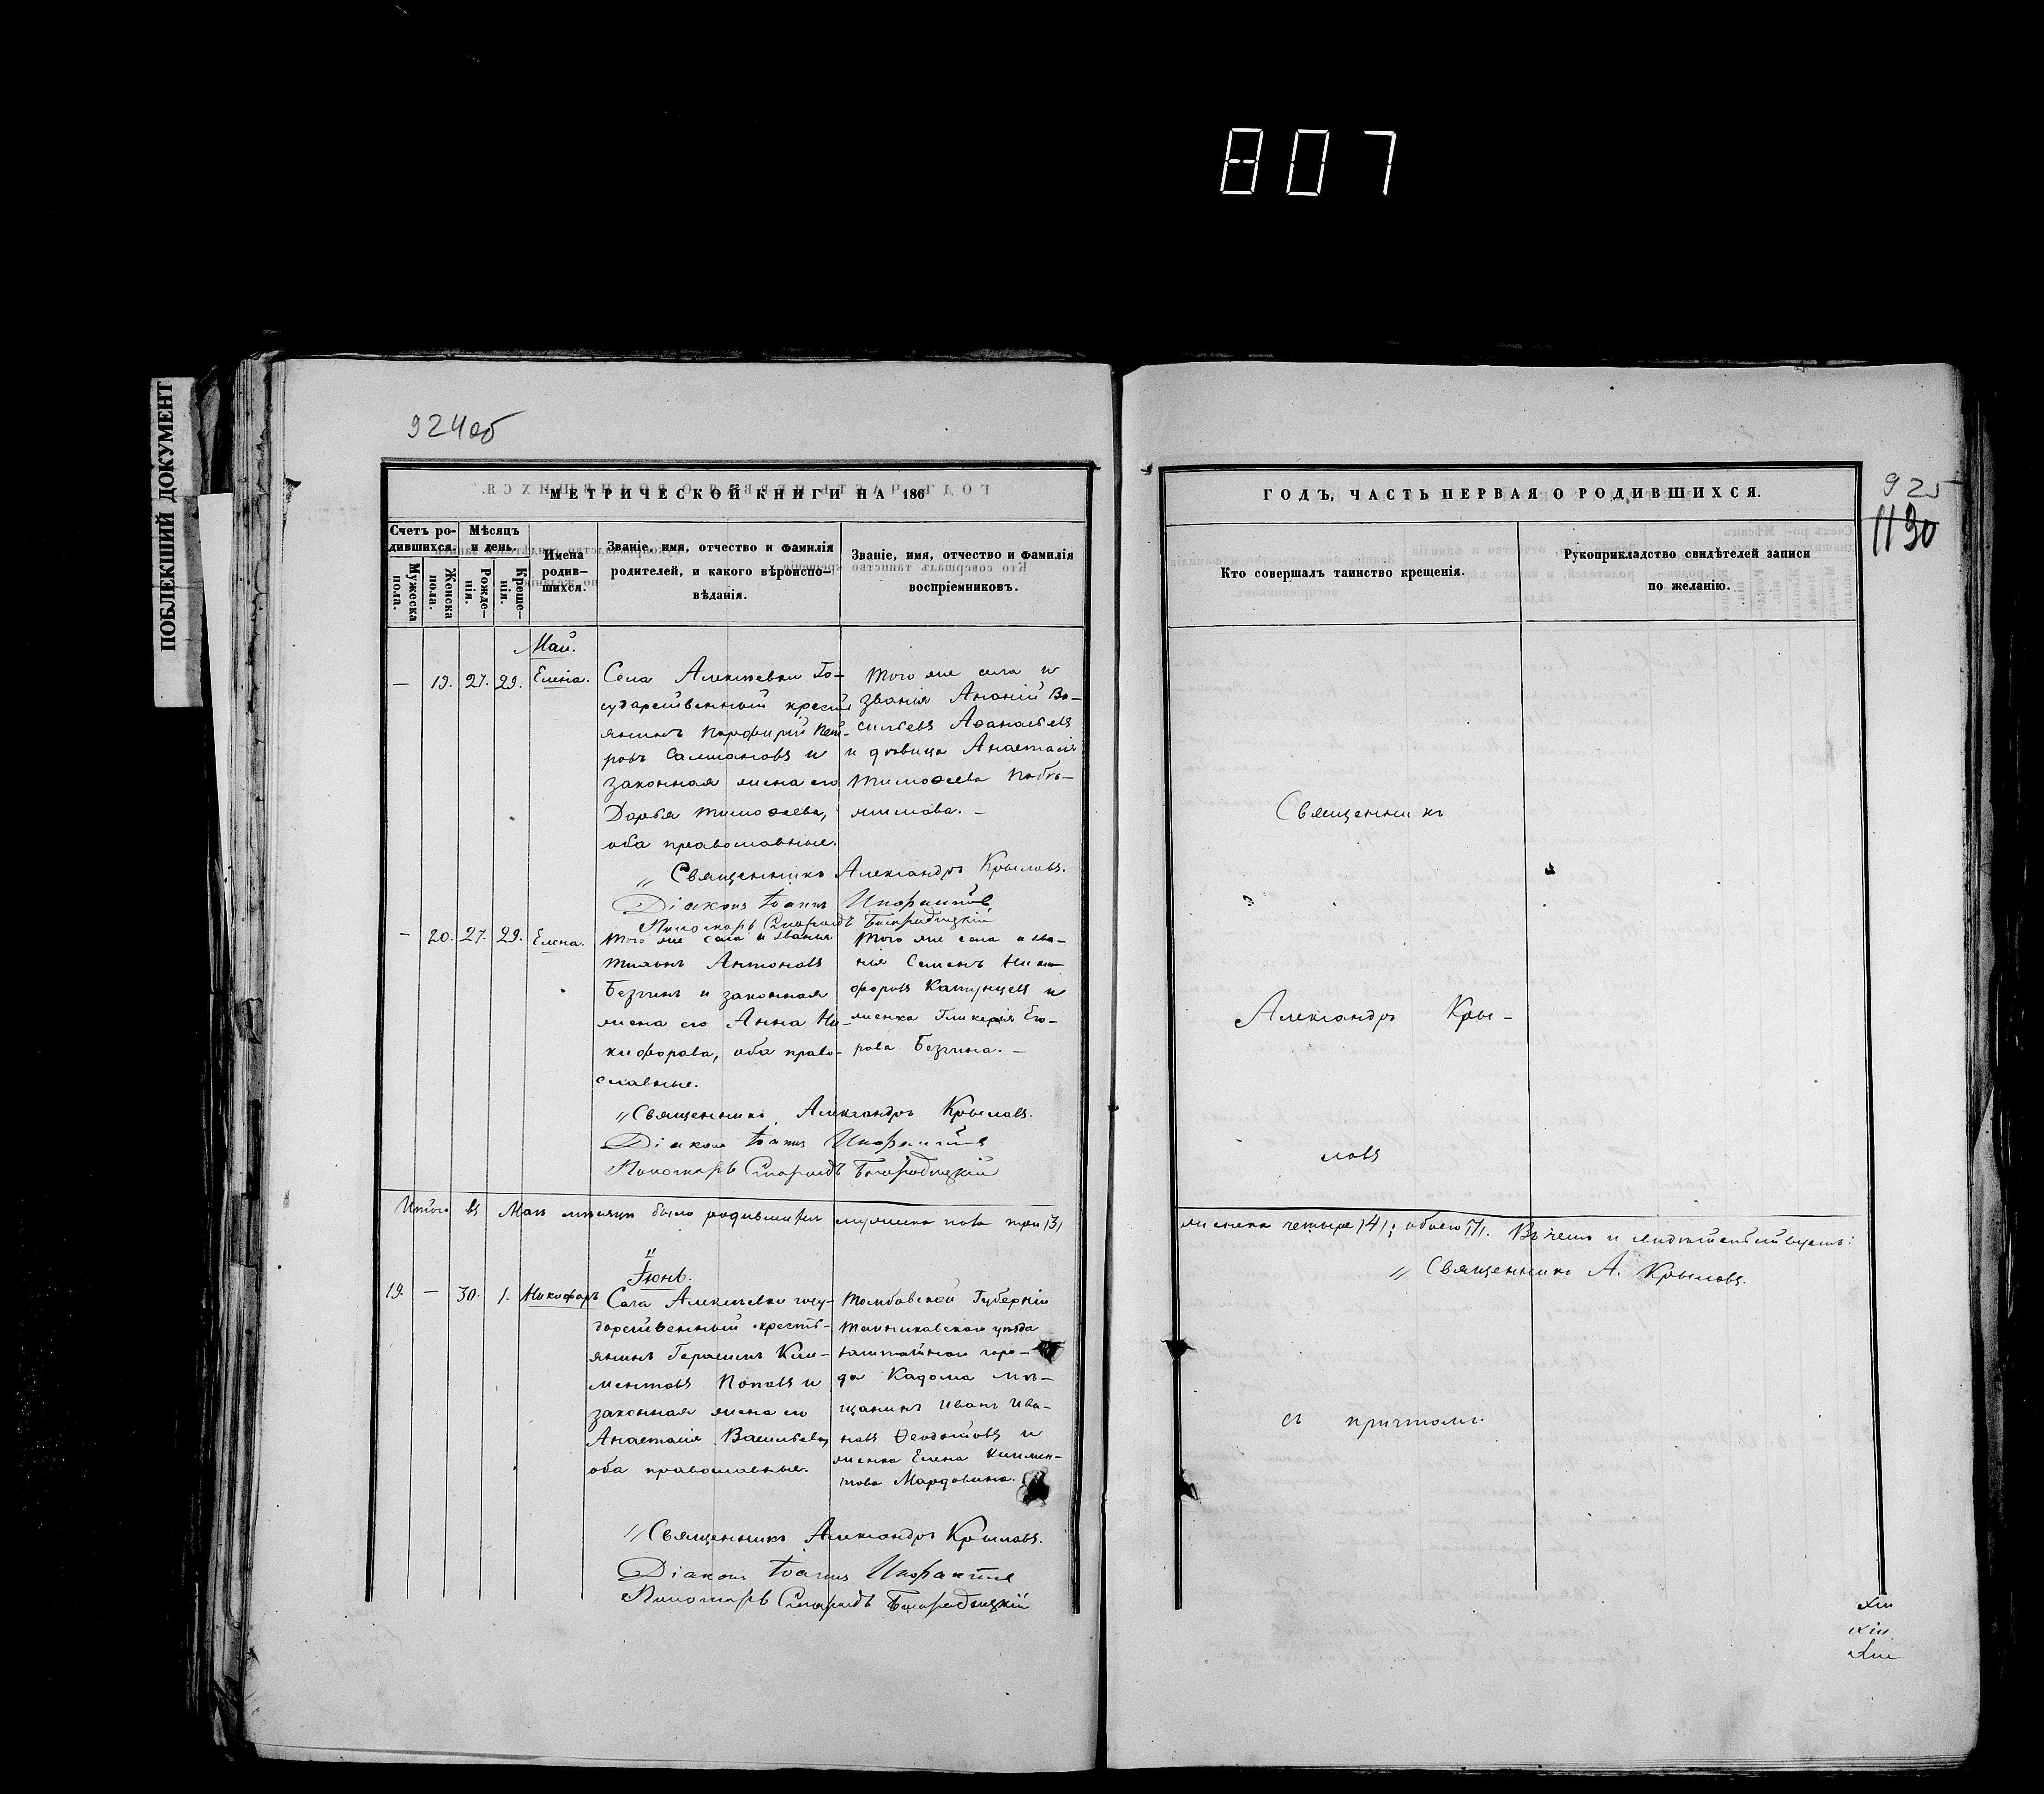 807
ПОБЛЕКШИЙ ДОКУМЕНТ
924об
МЕТРИЧЕСКОЙ КНИГИ НА 186
Счетъ ро-
дившихся.
Мужеска
пола.
Женска
пола.
Мѣсяцъ
и день.
Рожде-
нія.
Креще-
нія.
Имена
родив-
шихся.
Званіе, имя, отчество и фамилія
родителей, и какого вѣроиспо-
вѣданія.
Званіе, имя, отчество и фамилія
воспріемниковъ.
Май.
— 19. 27. 29. Елена.
Села Алексѣевки Го-
сударственный крест
янинъ Порфирій Пет-
ровъ Салмановъ и
законная жена его
Дарья Тимоѳеева,
оба православные.
Того же села и
званія Ананій Ва-
сильевъ Аѳанасьевъ
и дѣвица Анастасія
Тимоѳеева
Священникъ Александръ Крыловъ.
Діаконъ Іоаннъ
Пономарь Спиридъ Богородицкій
— 20. 27. 29. Елена.
Того же села и званія
Антоновъ
Безгинъ и законная
жена его Анна Ни-
кифорова, оба право-
славные.
Того же села и зва-
нія Семенъ Ники-
форовъ Капунцевъ и
женка Гликерія Его-
рова Безгина. —
Священникъ Александръ Крыловъ.
Діаконъ Іоаннъ
Пономарь Спиридъ Богородицкій
Итого въ Маѣ мѣсяцѣ было родившихся мужеска пола три /3/
Іюнь.
19. — 30. 1. Никифоръ
Села Алексѣевки госу-
дарственный кресть-
янинъ Герасимъ Кли-
ментовъ Поповъ и
законная жена его
Анастасія Васильева,
оба православные.
Тамбовской Губерніи
Темниковскаго уѣзда
заштатнаго горо-
да Кадома мѣ-
щанинъ Иванъ Ива-
новъ Ѳеодотовъ и
женка Елена Климен-
това Мордовина.
Священникъ Александръ Крыловъ.
Діаконъ Іоаннъ
Пономарь Спиридъ Богородицкій
925
1190
ГОДЪ, ЧАСТЬ ПЕРВАЯ О РОДИВШИХСЯ.
Кто совершалъ таинство крещенія.
Рукоприкладство свидѣтелей записи
по желанію.
Священникъ
Александръ Кры-
ловъ
женска четыре /4/; обоего /7/. Въ чемъ и свидѣтельствуемъ:
Священникъ А. Крыловъ.
съ причтомъ.